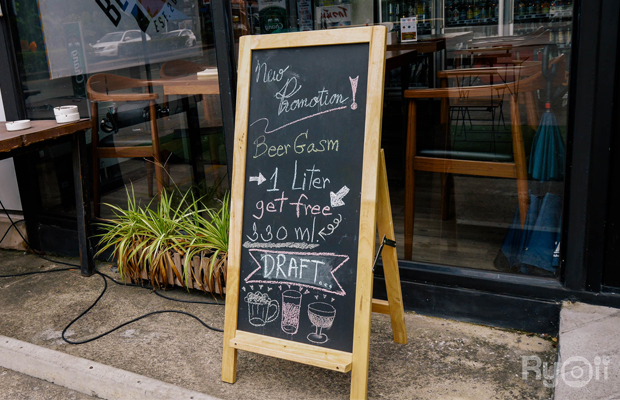 New
Promotion!
BeerGasm
1 Liter
get free
330 ml
DRAFT...
Ryoii